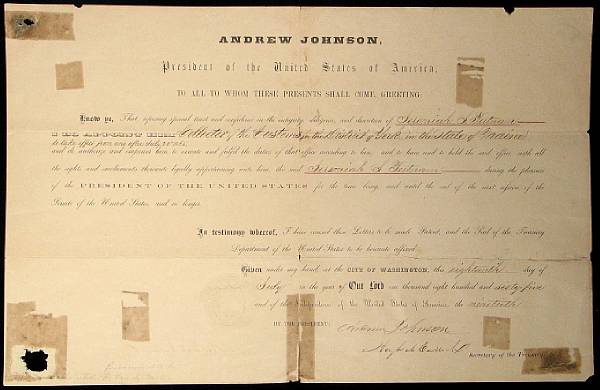 ANDREW JOHNSON,
President of the United States of America,
TO ALL TO WHOM THESE PRESENTS SHALL COME, GREETING:
Know ye, That reposing special trust and confidence in the integrity, diligence, and discretion of Jeremiah S.
I DO APPOINT HIM Collector of the Customs for the District of in the State of
to take effect from and after
and do authorize and empower him to execute and fulfil the duties of that office according to law; and to have and to hold the said office, with all
the rights and emoluments thereunto legally appertaining unto him, the said Jeremiah S. during the pleasure
of the PRESIDENT OF THE UNITED STATES for the time being, and until the end of the next session of the
Senate of the United States, and no longer.
In testimony whereof, I have caused these Letters to be made Patent, and the Seal of the Treasury
Department of the United States to be hereunto affixed.
Given under my hand, at the CITY OF WASHINGTON, this eighteenth day of
July in the year of Our Lord one thousand eight hundred and sixty-five
and of the Independence of the United States of America the ninetieth
BY THE PRESIDENT:
Andrew Johnson
Secretary of the Treasury